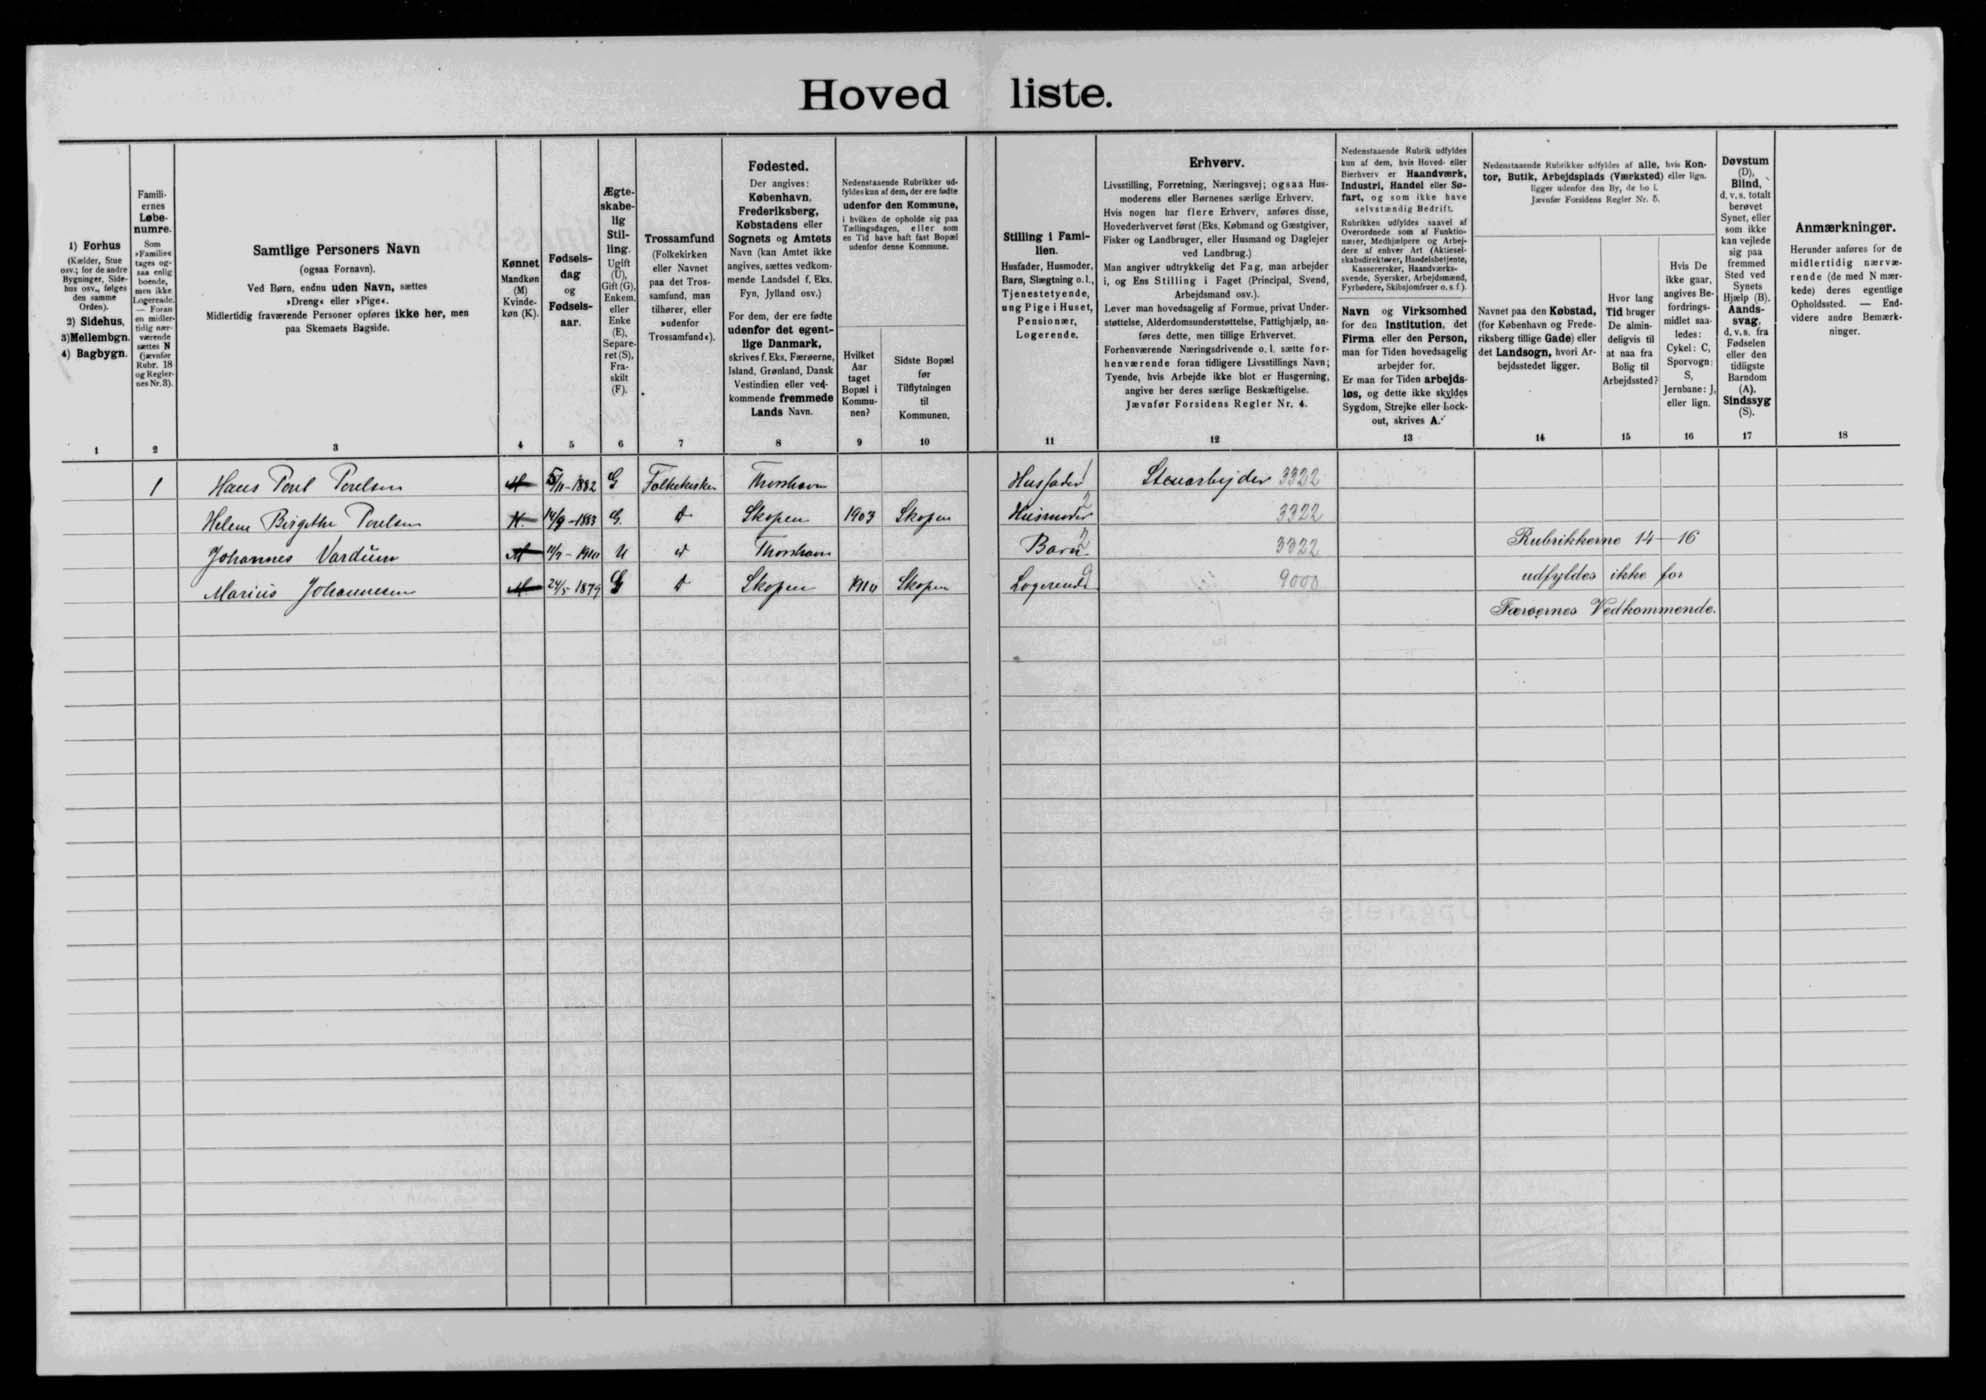 Hovedliste.
1) Forhus
(Kælder, Stue
osv.; for de andre
Bygninger, Side-
hus osv., følges
den samme
Orden).
2) Sidehus,
3) Mellembgn.
4) Bagbygn.
1
Famili-
ernes
Løbe-
numre.
Som
»Familie«
tages og-
saa enlig
boende,
men ikke
Logerende.
— Foran
en midler-
tidig nær-
værende
sættes N
(jævnfør
Rubr. 18
og Regler-
nes Nr. 3).
2
Samtlige Personers Navn
(ogsaa Fornavn).
Ved Børn, endnu uden Navn, sættes
»Dreng« eller »Pige«.
Midlertidig fraværende Personer opføres ikke her, men
paa Skemaets Bagside.
3
Kønnet
Mandkøn
(M)
Kvinde-
køn (K).
4
Fødsels-
dag
og
Fødsels-
aar.
5
Ægte-
skabe-
lig
Stil-
ling.
Ugift
(U),
Gift (G),
Enkem.
eller
Enke
(E),
Separe-
ret (S),
Fra-
skilt
(F).
6
Trossamfund
(Folkekirken
eller Navnet
paa det Tros-
samfund, man
tilhører, eller
»udenfor
Trossamfund«).
7
Fødested.
Der angives:
København,
Frederiksberg,
Købstadens eller
Sognets og Amtets
Navn (kan Amtet ikke
angives, sættes vedkom-
mende Landsdel f. Eks.
Fyn, Jylland osv.)
For dem, der ere fødte
udenfor det egent-
lige Danmark,
skrives f. Eks. Færøerne,
Island, Grønland, Dansk
Vestindien eller ved-
kommende fremmede
Lands Navn.
8
Nedenstaaende Rubrikker ud-
fyldes kun af dem, der ere fødte
udenfor den Kommune,
i hvilken de opholde sig paa
Tællingsdagen, eller som
en Tid have haft fast Bopæl
udenfor denne Kommune.
Hvilket
Aar
taget
Bopæl i
Kommu-
nen?
9
Sidste Bopæl
før
Tilflytningen
til
Kommunen.
10
Stilling i Fami-
lien.
Husfader, Husmoder,
Barn, Slægtning o. l.,
Tjenestetyende,
ung Pige i Huset,
Pensionær,
Logerende.
11
Erhverv.
Livsstilling, Forretning, Næringsvej; ogsaa Hus-
moderens eller Børnenes særlige Erhverv.
Hvis nogen har flere Erhverv, anføres disse,
Hovederhvervet først (Eks. Købmand og Gæstgiver,
Fisker og Landbruger, eller Husmand og Daglejer
ved Landbrug.)
Man angiver udtrykkelig det Fag, man arbejder
i, og Ens Stilling i Faget (Principal, Svend,
Arbejdsmand osv.).
Lever man hovedsagelig af Formue, privat Under-
støttelse, Alderdomsunderstøttelse, Fattighjælp, an-
føres dette, men tillige Erhvervet.
Forhenværende Næringsdrivende o. l. sætte for-
henværende foran tidligere Livsstillings Navn;
Tyende, hvis Arbejde ikke blot er Husgerning,
angive her deres særlige Beskæftigelse.
Jævnfør Forsidens Regler Nr. 4.
12
Nedenstaaende Rubrik udfyldes
kun af dem, hvis Hoved- eller
Bierhverv er Haandværk,
Industri, Handel eller Sø-
fart, og som ikke have
selvstændig Bedrift.
Rubrikken udfyldes saavel af
Overordnede som af Funktio-
nærer, Medhjælpere og Arbej-
dere af enhver Art (Aktiesel-
skabsdirektører, Handelsbetjente,
Kasserersker, Haandværks-
svende, Syersker, Arbejdsmænd,
Fyrbødere, Skibsjomfruer o. s. f.).
Navn og Virksomhed
for den Institution, det
Firma eller den Person,
man for Tiden hovedsagelig
arbejder for.
Er man for Tiden arbejds-
løs, og dette ikke skyldes
Sygdom, Strejke eller Lock-
out, skrives A.
13
Nedenstaaende Rubrikker udfyldes af alle, hvis Kon-
tor, Butik, Arbejdsplads (Værksted) eller lign.
ligger udenfor den By, de bo i.
Jævnfør Forsidens Regler Nr. 5.
Navnet paa den Købstad,
(for København og Frede-
riksberg tillige Gade) eller
det Landsogn, hvori Ar-
bejdsstedet ligger.
14
Hvor lang
Tid bruger
De almin-
deligvis til
at naa fra
Bolig til
Arbejdssted?
15
Hvis De
ikke gaar,
angives Be-
fordrings-
midlet saa-
ledes:
Cykel: C,
Sporvogn:
S,
Jernbane: J,
eller lign.
16
Døvstum
(D),
Blind,
d. v. s. totalt
berøvet
Synet, eller
som ikke
kan vejlede
sig paa
fremmed
Sted ved
Synets
Hjælp (B).
Aands-
svag,
d. v. s. fra
Fødselen
eller den
tidligste
Barndom
(A).
Sindssyg
(S).
17
Anmærkninger.
Herunder anføres for de
midlertidig nærvæ-
rende (de med N mær-
kede) deres egentlige
Opholdssted. — End-
videre andre Bemærk-
ninger.
18
1 Hans Poul Poulsen M 5/11-1882 G Folkekirken Thorshavn Husfader 1 Stenarbejder 3322
Helene Birgithe Poulsen K. 14/9-1883 G. d Skopen 1903 Skopen Husmoder 2 3322
Johannes Vardum M 11/7-1910 U d Thorshavn Barn 2 3322
Marius Johannesen M 24/5-1879 G d Skopen 1910 Skopen Logerende 9 9000
Rubrikkerne 14—16
udfyldes ikke for
Færøernes Vedkommende.